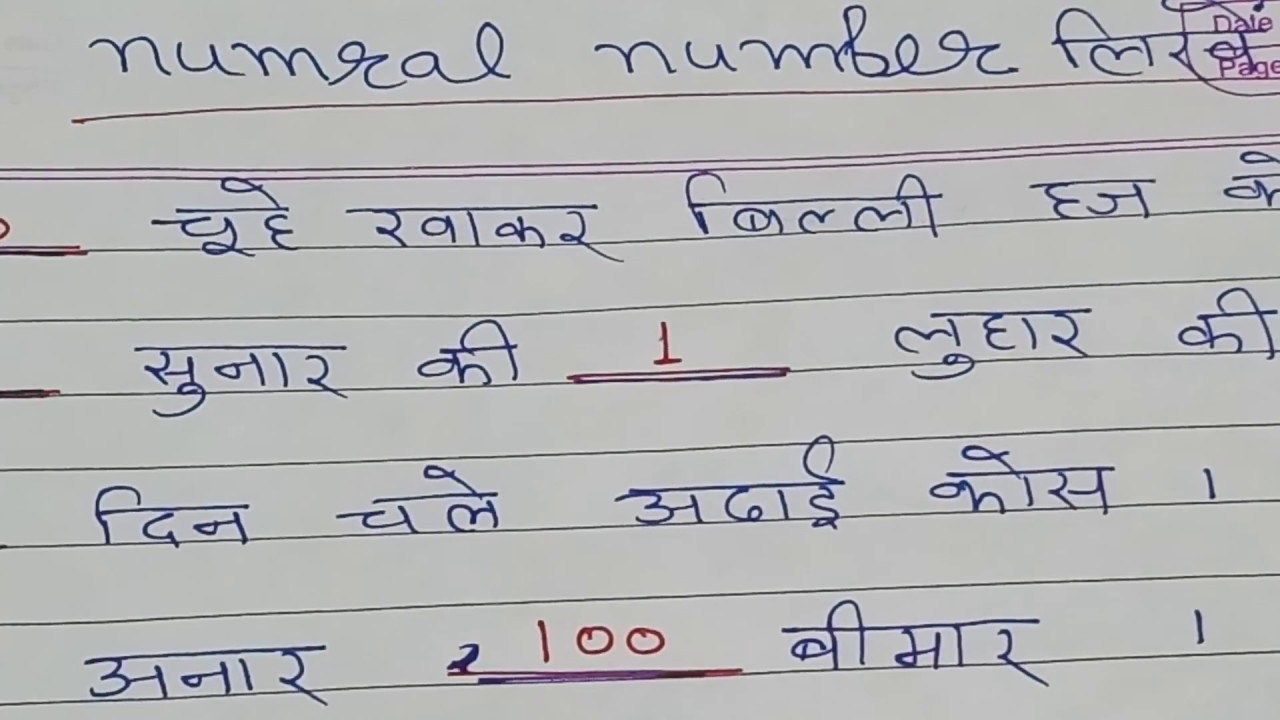 numral number लिखे
Date
Page
चूहे खाकर बिल्ली हज के
सुनार की 1 लुहार की
दिन चले अढाई कोस ।
अनार 100 बीमार ।